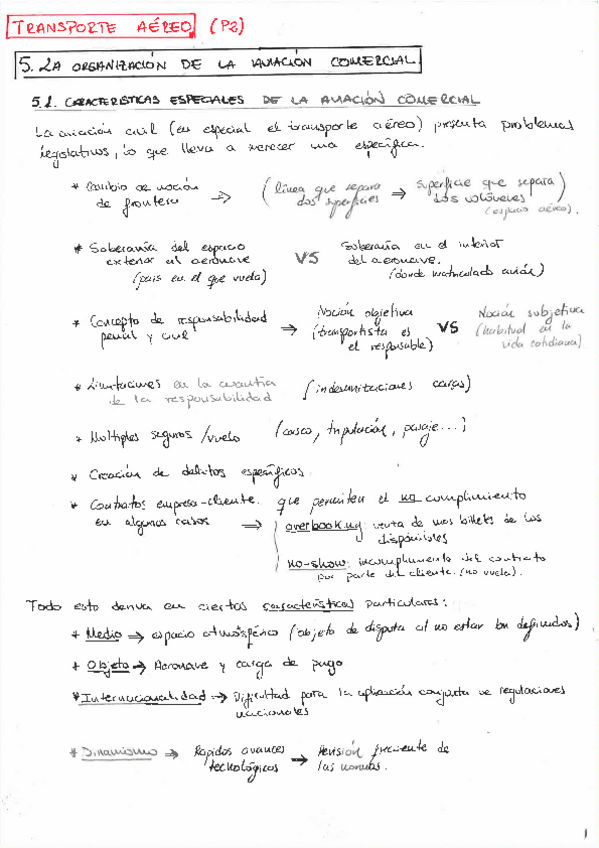 TRANSPORTE AÉREO (P2)
5. LA ORGANIZACIÓN DE LA AVIACIÓN COMERCIAL
5.1. CARACTERÍSTICAS ESPECIALES DE LA AVIACIÓN COMERCIAL
La aviación civil (en especial el transporte aéreo) presenta problemas
legislativos, lo que lleva a merecer una específica.
* Cambio de noción de frontera → (línea que separa dos superficies → superficie que separa dos volúmenes (espacio aéreo).
* Soberanía del espacio exterior al aeronave (país en el que vuela) VS Soberanía en el interior del aeronave. (donde matriculado avión)
* Concepto de responsabilidad penal y civil → Noción objetiva (transportista es el responsable) VS Noción subjetiva (habitual en la vida cotidiana)
* Limitaciones en la cuantía de la responsabilidad (indemnizaciones caras)
* Multiples seguros/vuelo (casco, tripulación, pasaje...)
* Creación de delitos específicos.
* Contratos empresa-cliente que permiten el no cumplimiento
en algunos casos → overbooking: venta de mas billets de los disponibles
no-show: incumplimiento del contrato
por parte del cliente. (no vuela).
Todo esto deriva en ciertas características particulares:
* Medio → espacio atmosférico (objeto de disputa al no estar bn definidos)
* Objeto → Aeronave y carga de pago
* Internacionalidad → Dificultad para la aplicación conjunta de regulaciones
nacionales
* Dinamismo → Rápidos avances tecnológicos → Revisión frecuente de las normas.
1